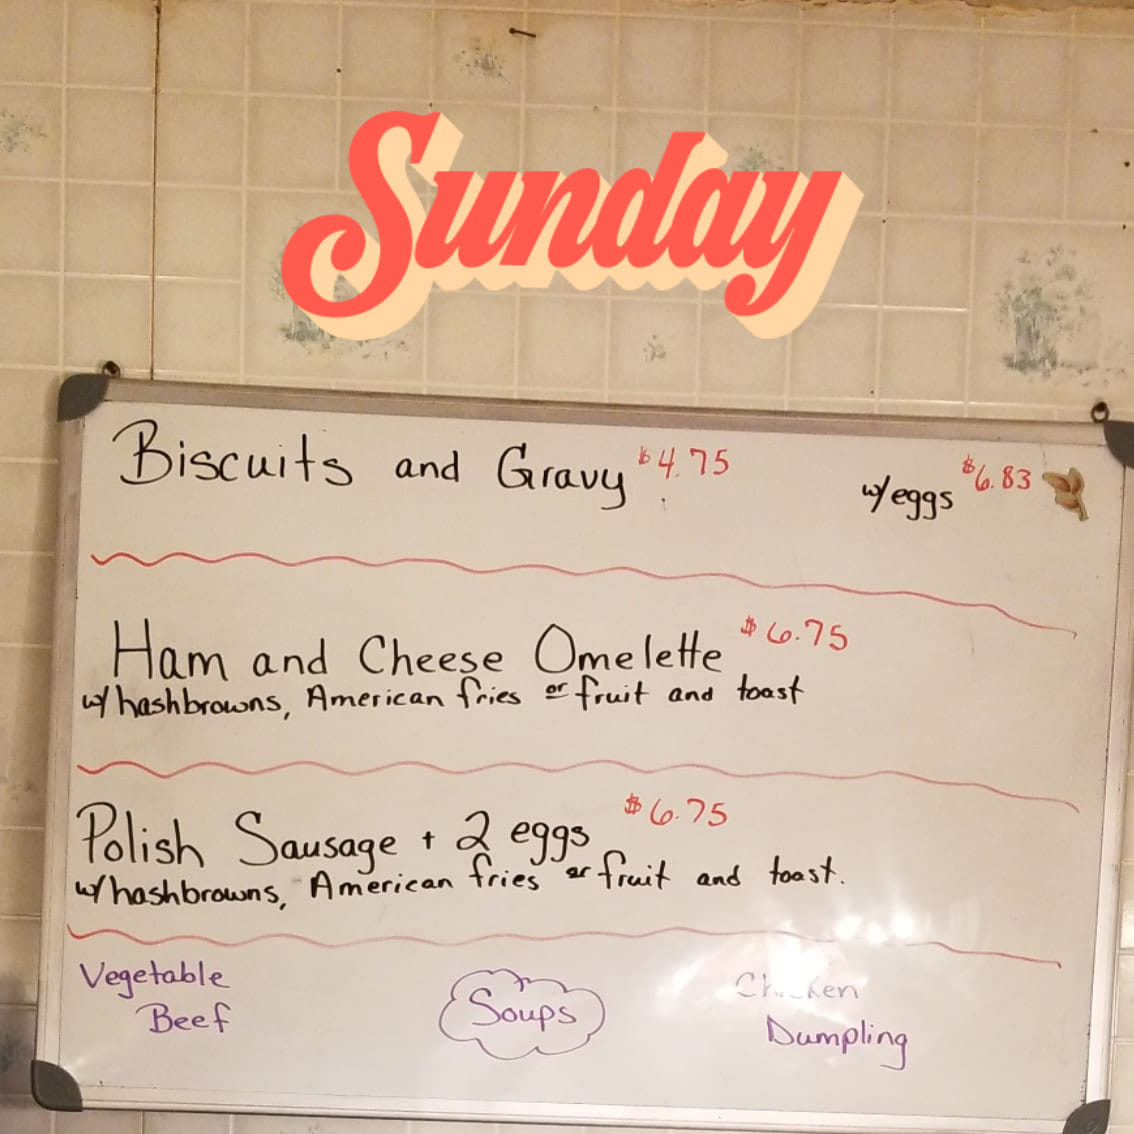 Sunday
Biscuits and Gravy $4.75 w/eggs $6.83
Ham and Cheese Omelette $6.75
w/hashbrowns, American fries or fruit and toast
Polish Sausage + 2 eggs $6.75
w/hashbrowns, American fries or fruit and toast.
Vegetable
Beef
Soups
Chicken
Dumpling